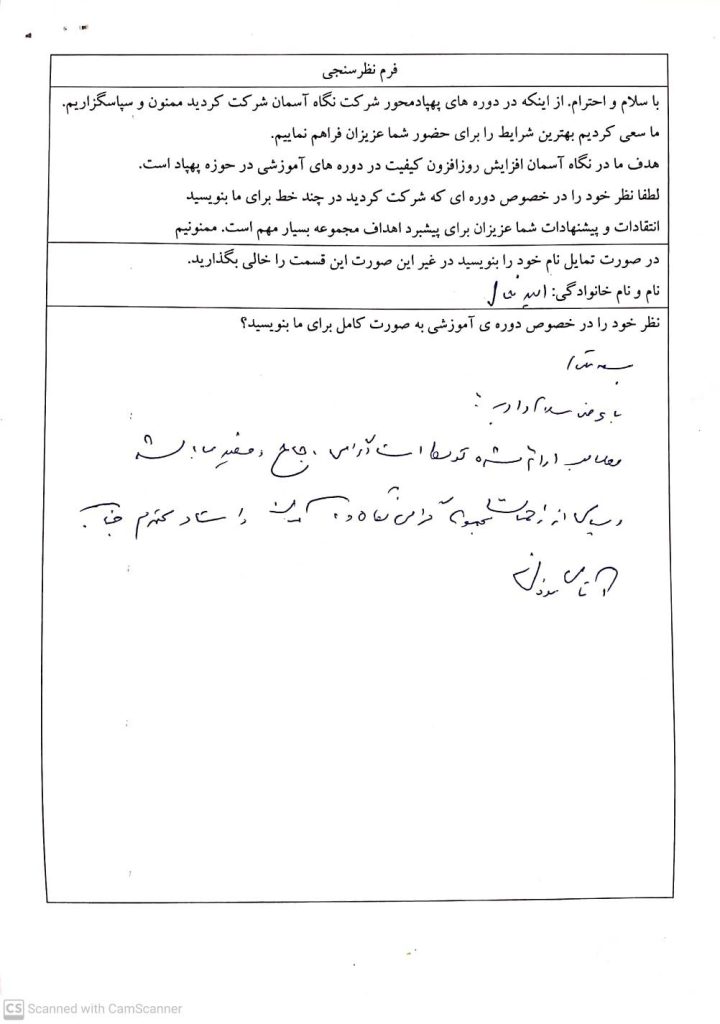 فرم نظرسنجی
با سلام و احترام. از اینکه در دوره های پهپادمحور شرکت نگاه آسمان شرکت کردید ممنون و سپاسگزاریم.
ما سعی کردیم بهترین شرایط را برای حضور شما عزیزان فراهم نماییم.
هدف ما در نگاه آسمان افزایش روزافزون کیفیت در دوره های آموزشی در حوزه پهپاد است.
لطفا نظر خود را در خصوص دوره ای که شرکت کردید در چند خط برای ما بنویسید
انتقادات و پیشنهادات شما عزیزان برای پیشبرد اهداف مجموعه بسیار مهم است. ممنونیم
در صورت تمایل نام خود را بنویسید در غیر این صورت این قسمت را خالی بگذارید.
نام و نام خانوادگی:
نظر خود را در خصوص دوره ی آموزشی به صورت کامل برای ما بنویسید؟
با عرض سلام و ادب:
مطالب ارائه شده توسط استاد گرامی، جامع و مفید
و سپاس از زحمات گرامی نگاه استاد محترم جناب
آقای
CS Scanned with CamScanner